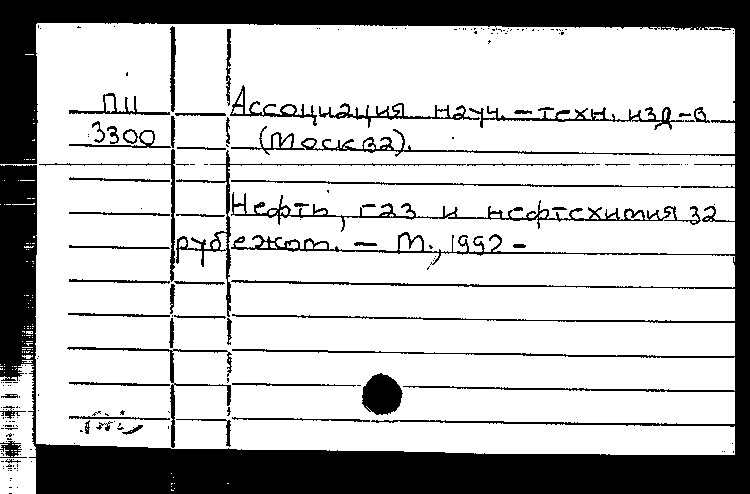 П11 Ассоциация науч.-техн. изд-в
3300 (Москва).
Нефть, газ и нефтехимия за
рубежом. — М., 1992 -